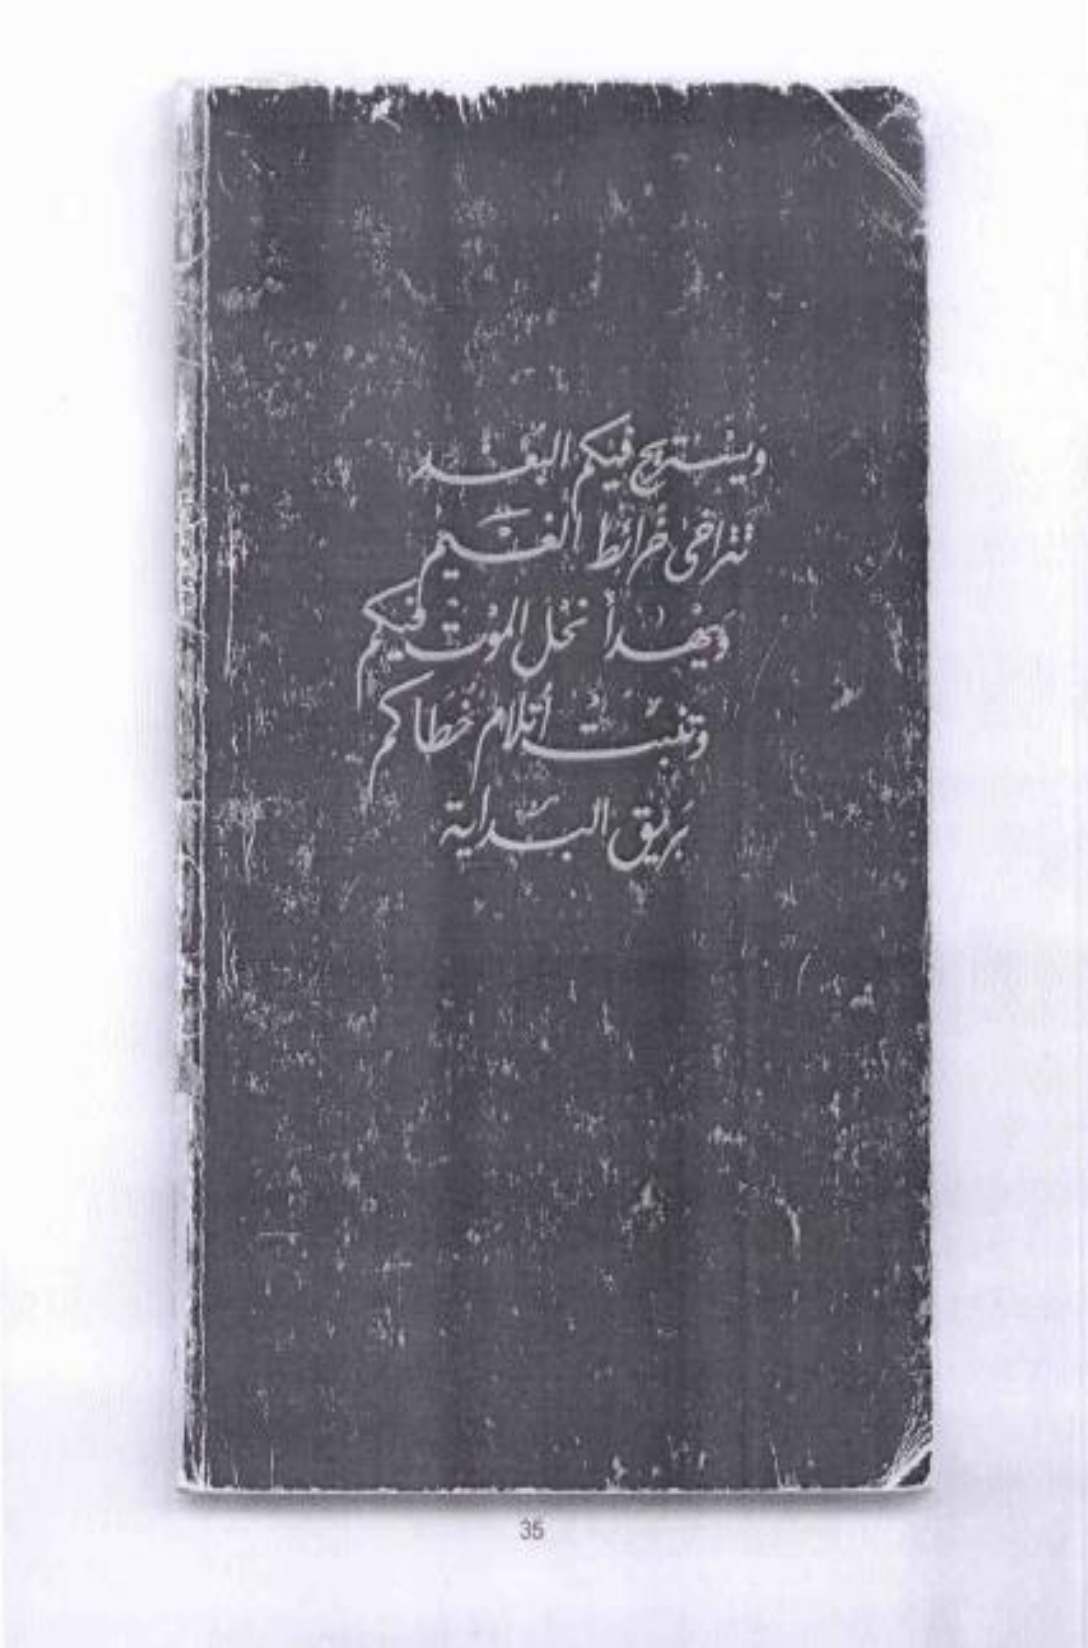 وَيسْتريح فيكم البُعْد
تتراخى خرائط الغيم
ويهدأ نحل الموت فيكم
وتنبت أتلام خطاكم
بريق البداية
35